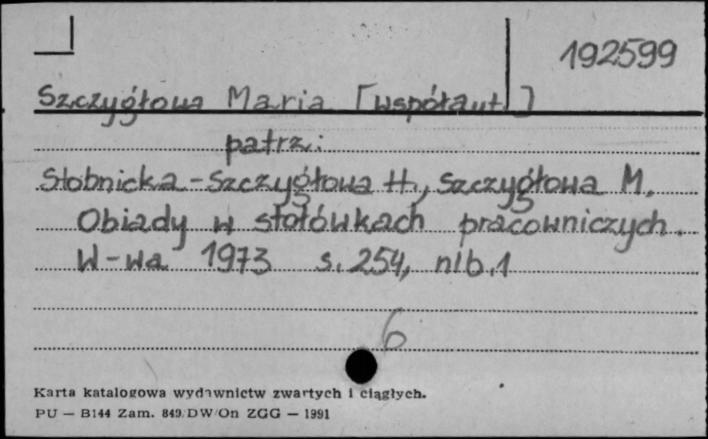 192599
Szczygłowa Maria [współaut.]
patrz:
Słobnicka-Szczygłowa H., Szczygłowa M.
Obiady w stołówkach pracowniczych.
W-wa 1973 s. 254, nlb.1
6
Karta katalogowa wydawnictw zwartych i ciągłych.
PU — B144 Zam. 849/DW/On ZGG — 1991